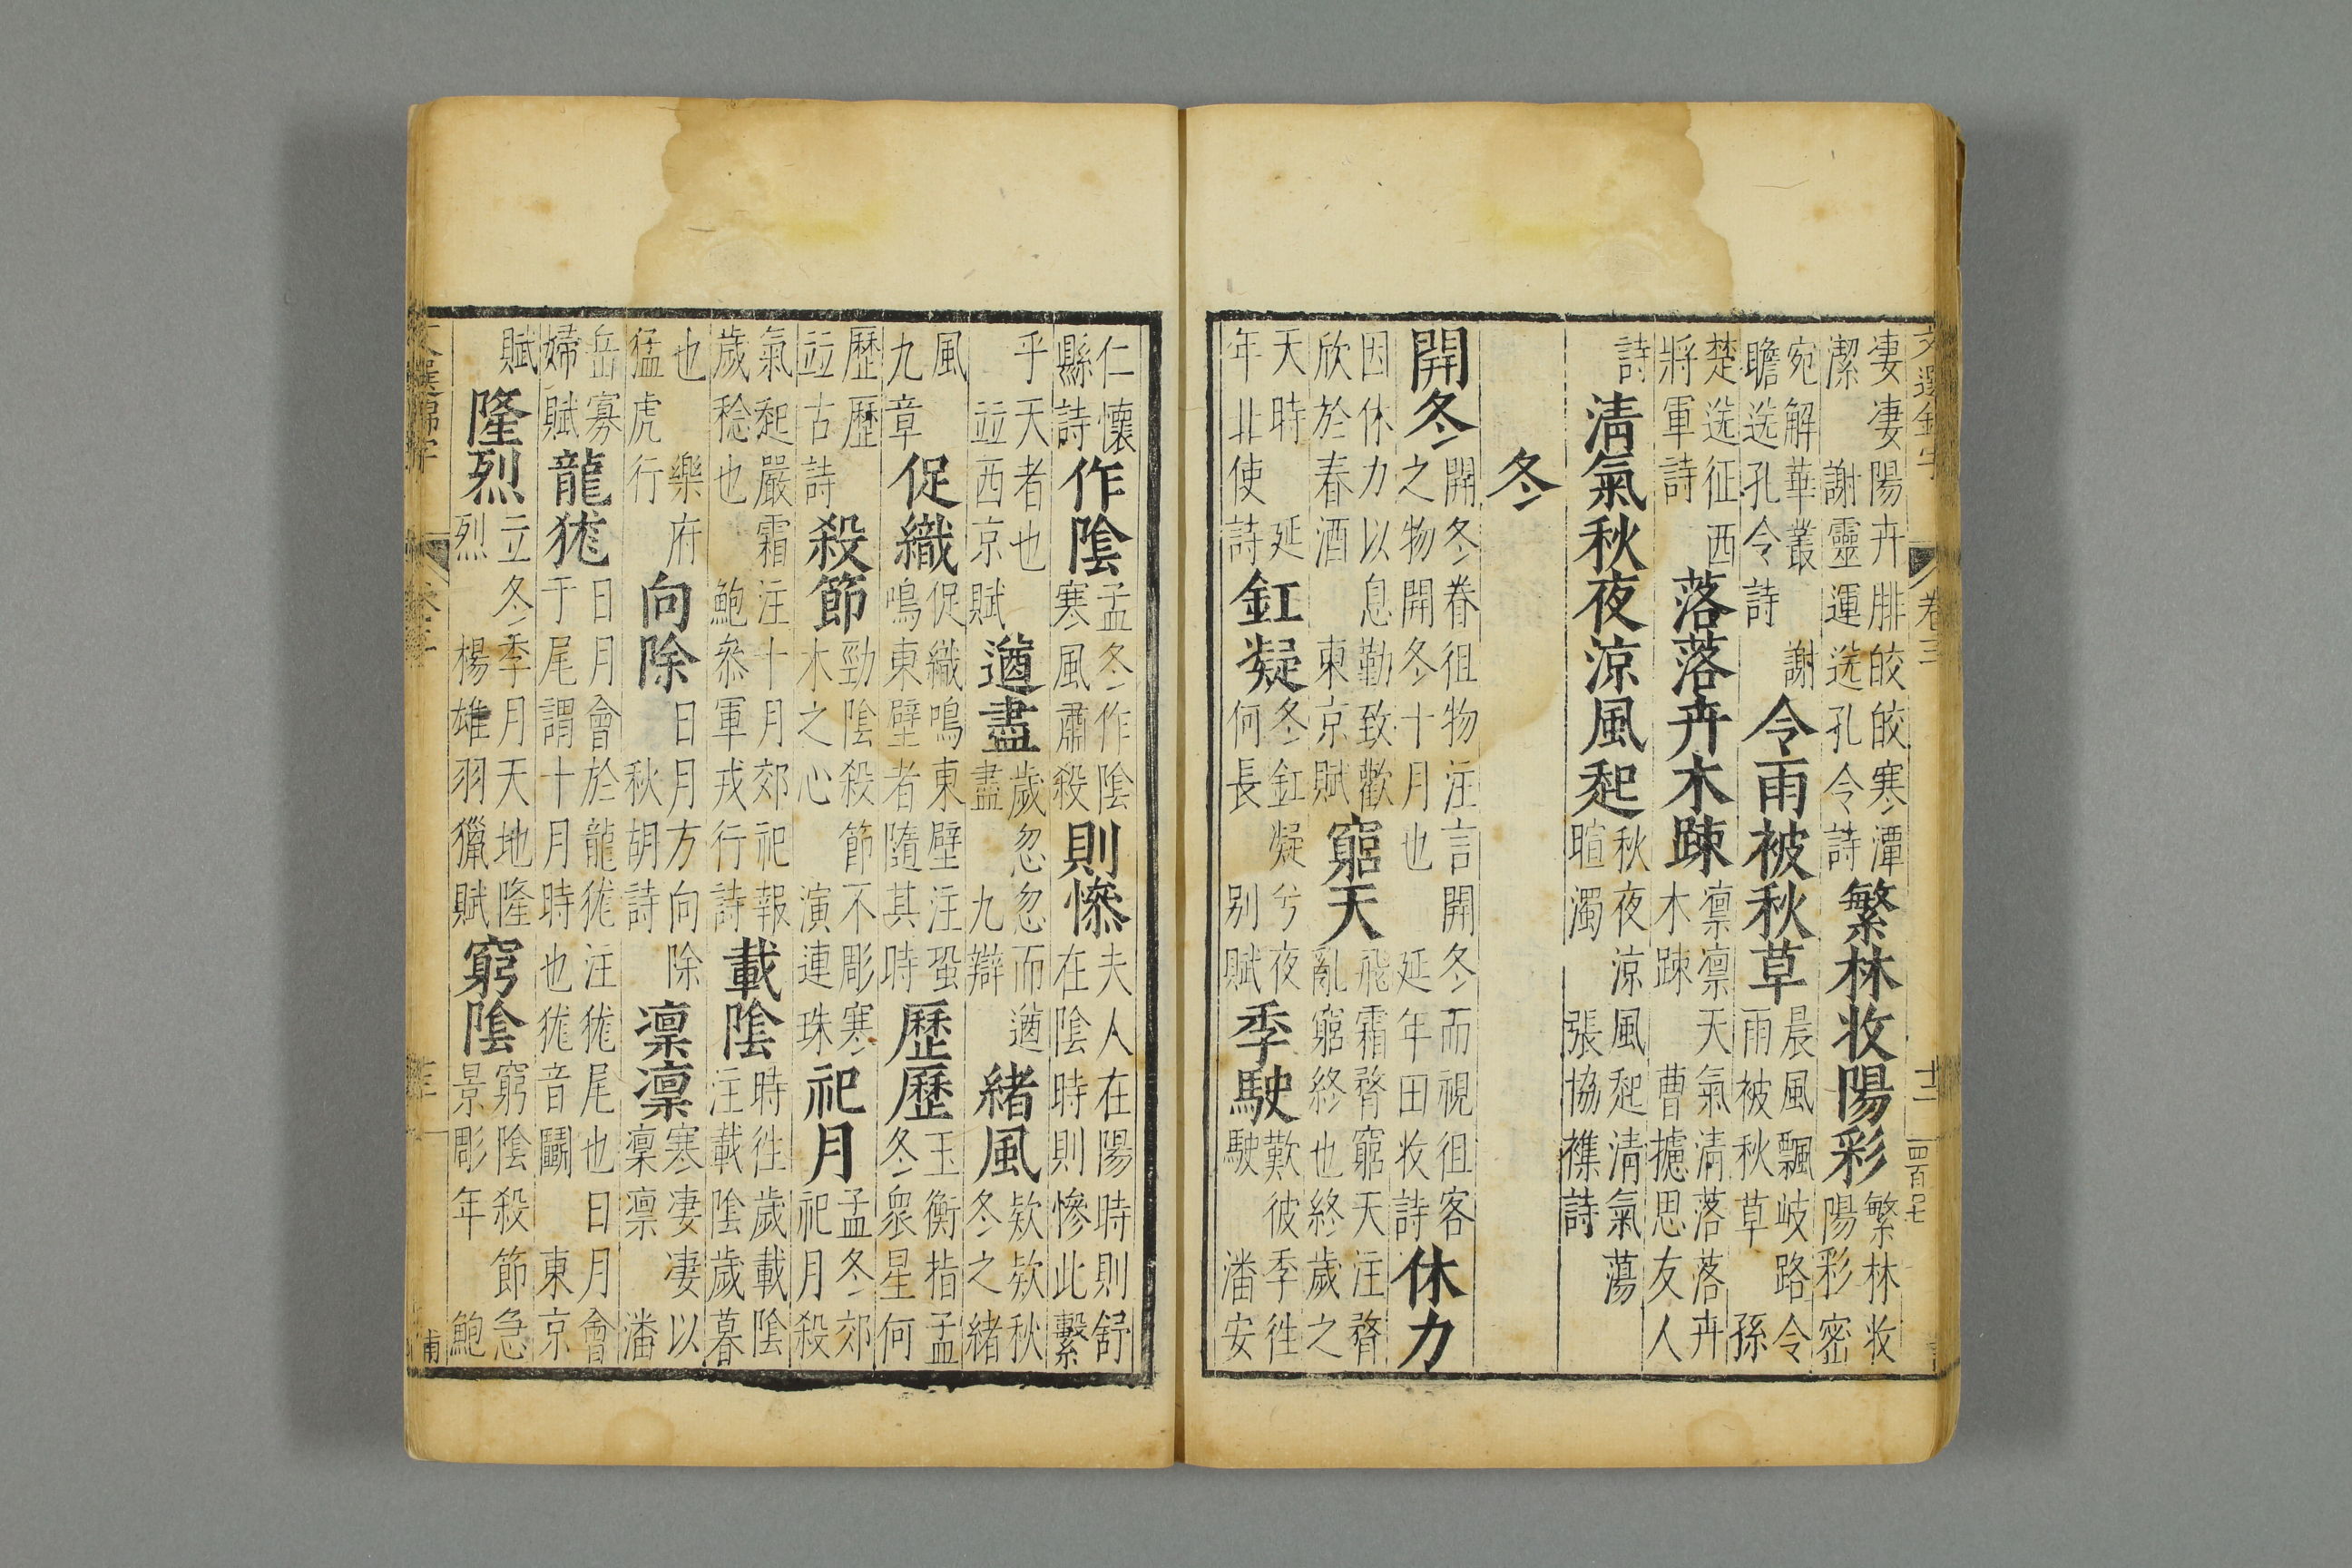 文選錦字 卷三 十二
凄凄陽卉腓皎皎寒潭潔謝靈運选孔令詩繁林收陽彩繁林收陽彩密
宛解華叢謝瞻选孔令詩令雨被秋草晨風飄岐路令雨被秋草孫
楚选征西將軍詩落落卉木踈凛凛天氣清落落卉木踈曹攄思友人
詩清氣秋夜涼風起秋夜涼風起清氣蕩暄濁張協襍詩
冬
開冬開冬眷徂物注言開冬而視徂客之物開冬十月也延年田收詩休力
因休力以息勤致歡欣於春酒東京賦窮天飛霜瞀窮天注瞀亂窮終也終歲之
天時延年北使詩釭凝冬釭凝兮夜何長别賦季駛歎彼季徃駛潘安
仁懷縣詩作陰孟冬作陰寒風肅殺則慘夫人在陽時則舒在陰時則慘此繫
乎天者也竝西京賦遒盡歲忽忽而遒盡九辯緒風欸欸秋冬之緒
風九章促織促織鳴東壁注蛩鳴東壁者隨其時歷歷玉衡指孟冬衆星何
歷歷竝古詩殺節勁陰殺節不彫寒木之心演連珠祀月孟冬郊祀月殺
氣起嚴霜注十月郊祀報歲稔也鮑叅軍戎行詩載陰時徃歲載陰注載陰歲暮
也樂府猛虎行向除日月方向除秋胡詩凛凛寒凄凄以凛凛潘
岳寡婦賦龍狵日月會於龍狵注狵尾也日月會于尾謂十月時也狵音鬭東京
賦隆烈立冬季月天地隆烈楊雄羽獵賦窮陰窮陰殺節急景彫年鮑